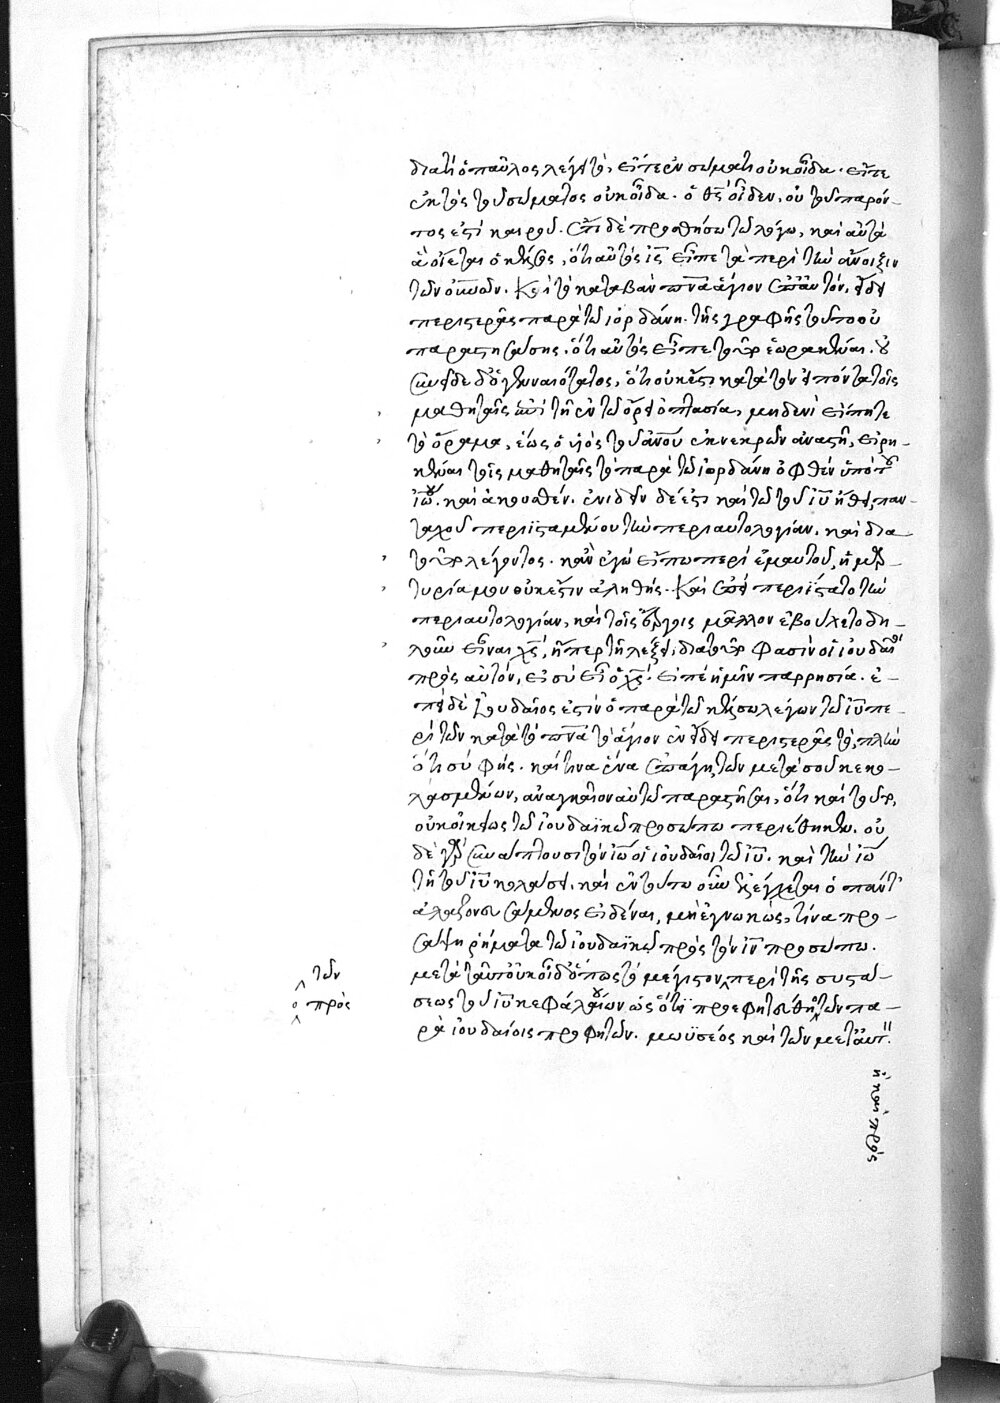 διατί ὁ παῦλος λέγει τὸ, εἴτε ἐν σώματι οὐκ οἶδα· εἴτε
ἐκτὸς τοῦ σώματος οὐκ οἶδα· ὁ θς οἶδεν, οὐ τοῦ παρόν-
τος ἐστὶ καιροῦ. ἔτι δὲ προσθήσω τῶ λόγω, καὶ αὐτὰ
ἃ οἴεται ὁ κέλσος, ὅτι αὐτὸς ις εἶπε τὰ περὶ τὴν ἄνοιξιν
τῶν οὐνῶν. καὶ τὸ καταβὰν πνα ἅγιον ἐπ' αὐτὸν, εἴδει
περιστερᾶς παρὰ τῶ ἰορδάνη. τῆς γραφῆς τοῦτο οὐ
παραστησάσης, ὅτι αὐτὸς εἶπε τοῦθ' ἑωρακέναι. οὐ
συνεῖδε δ' ὁ γενναιότατος, ὅτι οὐκ ἔστι κατὰ τὸν εἰπόντα τοῖς
μαθηταῖς ἐπὶ τῆ ἐν τῶ ὄρει ὀπτασία, μηδενὶ εἴπητε
τὸ ὅραμα, ἕως ὁ υἱὸς τοῦ ανου ἐκ νεκρῶν ἀναστῆ, εἰρη-
κέναι τοῖς μαθηταῖς τὸ παρὰ τῶ ἰορδάνη ὀφθὲν ὑπὸ τοῦ
ἰωου. καὶ ἀκουσθέν. ἐνιδεῖν δέ ἐστι καὶ τῶ τοῦ ιυ ἤθει, παν-
ταχοῦ περιϊσταμένου τὴν περιαυτολογίαν. καὶ διὰ
τοῦτο λέγοντος. κἂν ἐγὼ εἴπω περὶ ἐμαυτοῦ, ἡ μαρ-
τυρία μου οὐκ ἔστιν ἀληθής. καὶ ἐπεὶ περιΐστατο τὴν
περιαυτολογίαν, καὶ τοῖς ἔργοις μᾶλλον ἐβούλετο δη-
λοῦν εἶναι χς, ἤπερ τῆ λέξει, διὰ τοῦτο φασὶν οἱ ἰουδαῖοι
πρὸς αὐτὸν, εἰ σὺ εἶ ὁ χς· εἰπὲ ἡμῖν παρρησία. ἐ-
πεὶ δὲ ἰουδαῖος ἐστὶν ὁ παρὰ τῶ κέλσω λέγων τῶ ιυ πε-
ρὶ τῶν κατὰ τὸ πνα τὸ ἅγιον ἐν εἴδει περιστερᾶς τὸ, πλὴν
ὅτι σὺ φής. καί τινα ἕνα ἐπάγη τῶν μετὰ σοῦ κεκο-
λασμένων, ἀναγκαῖον αὐτῶ παραστῆσαι, ὅτι καὶ ταῦτα,
οὐκ οἰκείως τῶ ἰουδαϊκῶ προσώπω περιέθηκεν. οὐ
δὲ γὰρ συνάπτουσι τὸν ιω οἱ ἰουδαῖοι τῶ ιυ. καὶ τὴν ιω
τῆ τοῦ ιυ κολάσει. καὶ ἐν τούτω οὖν ἐξελέγχεται ὁ πάντ'
ἀλαζονευσάμενος εἰδέναι, μὴ ἐγνωκὼς, τίνα προ-
σάψη ῥήματα τῶ ἰουδαϊκῶ πρὸς τὸν ιν προσώπω.
μετὰ ταῦτ' οὐκ οἶδ' ὅπως τὸ μέγιστον περὶ τῆς συστά-
σεως τοῦ ιυ κεφάλαιον ὡς ὅτι προεφητεύθη τῶν πα-
ρὰ ἰουδαίοις προφητῶν. μωϋσέος καὶ τῶν μετ' αὐτ.
τῶν
ο πρὸς
ἢ καὶ πρὸς